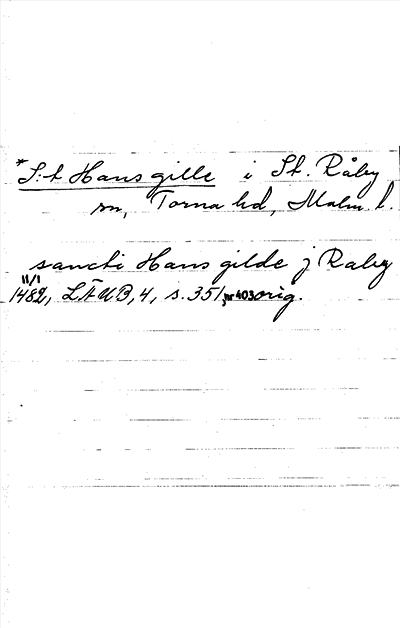 *S:t Hans gille i St. Råby
sn, Torna hd, Malm. l.
sancti Hans gilde j Raby
11/1
1482, LÄUB, 4, s. 351, nr 403 orig.